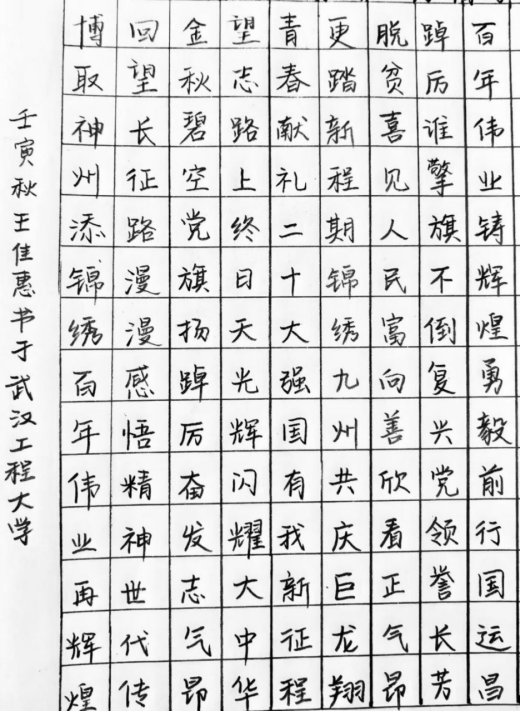 百年伟业铸辉煌勇毅前行国运昌
踔厉谁擎旗不倒复兴党领誉长芳
脱贫喜见人民富向善欣看正气昂
更踏新程期锦绣九州共庆巨龙翔
青春献礼二十大强国有我新征程
望志路上终日天光辉闪耀大中华
金秋碧空党旗扬踔厉奋发志气昂
回望长征路漫漫感悟精神世代传
博取神州添锦绣百年伟业再辉煌
壬寅秋王佳惠书于武汉工程大学